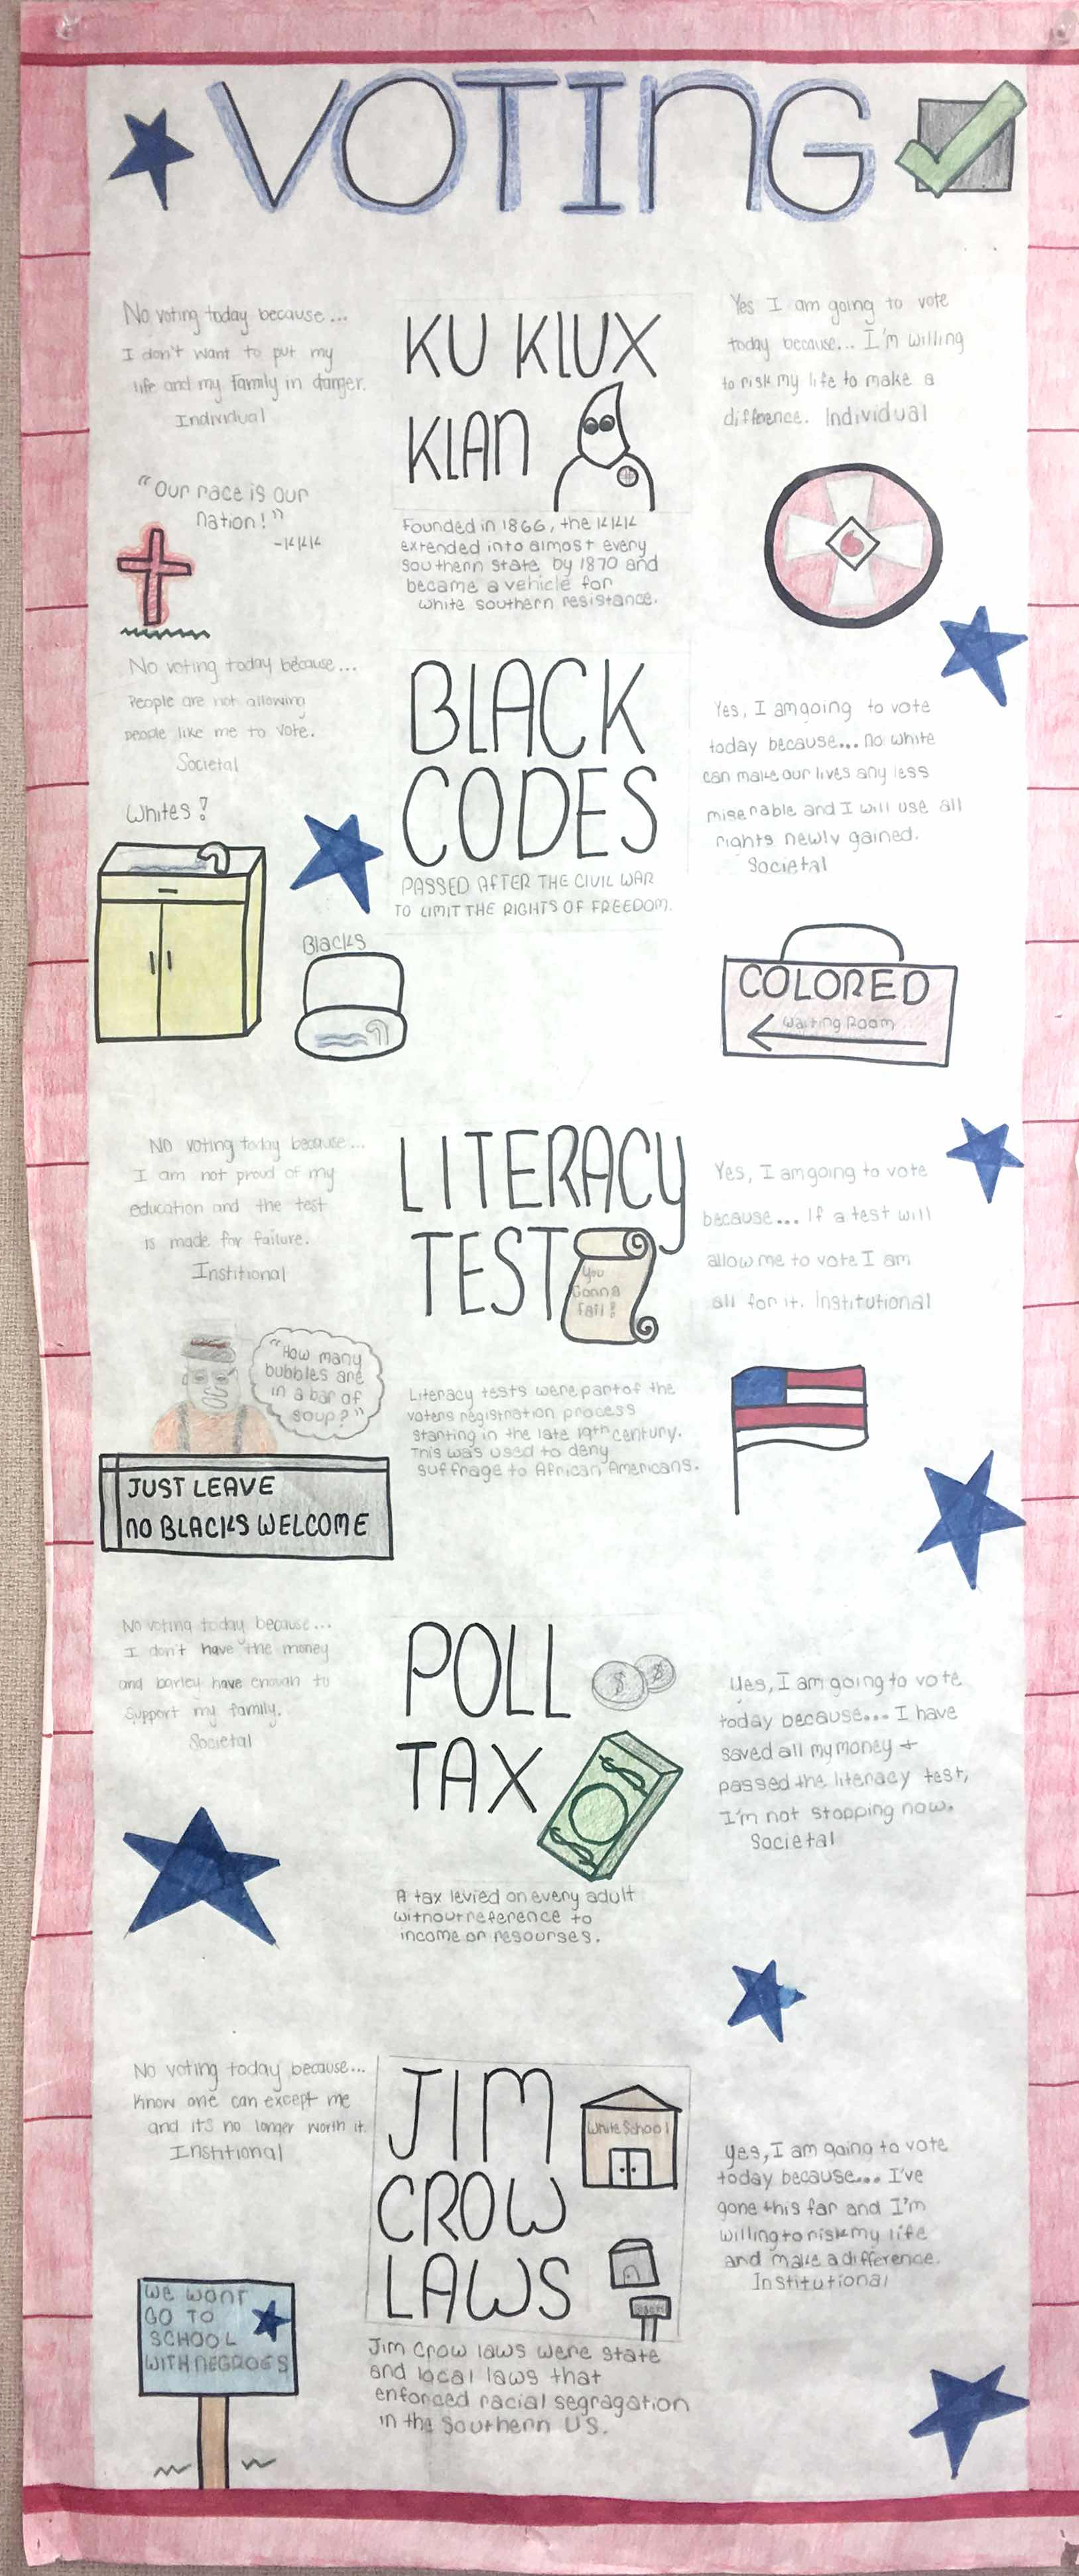 VOTING
No voting today because...
I don't want to put my
life and my family in danger.
Individual
"Our race is our
nation!"
-KKK
KU KLUX
KLAN
Founded in 1866, the KKK
extended into almost every
southern state by 1870 and
became a vehicle for
white southern resistance.
Yes I am going to vote
today because... I'm willing
to risk my life to make a
difference. Individual
No voting today because...
People are not allowing
people like me to vote.
Societal
Whites!
Blacks
BLACK
CODES
PASSED AFTER THE CIVIL WAR
TO LIMIT THE RIGHTS OF FREEDOM.
Yes, I am going to vote
today because... no white
can make our lives any less
miserable and I will use all
rights newly gained.
Societal
COLORED
Waiting Room
NO voting today because...
I am not proud of my
education and the test
is made for failure.
Institional
"How many
bubbles are
in a bar of
soup?"
JUST LEAVE
NO BLACKS WELCOME
LITERACY
TEST
You
Gonna
fail!
Literacy tests were part of the
voters registration process
starting in the late 19th century.
This was used to deny
suffrage to African Americans.
Yes, I am going to vote
because... If a test will
allow me to vote I am
all for it. Institutional
No voting today because...
I don't have the money
and barley have enough to
support my family.
Societal
POLL
TAX
$ $
A tax levied on every adult
without reference to
income or resourses.
Yes, I am going to vote
today because... I have
saved all my money +
passed the literacy test,
I'm not stopping now.
Societal
No voting today because...
Know one can except me
and it's no longer worth it.
Institional
WE WONT
GO TO
SCHOOL
WITH NEGROES
JIM
CROW
LAWS
White School
Jim Crow laws were state
and local laws that
enforced racial segragation
in the Southern US.
yes, I am going to vote
today because... I've
gone this far and I'm
willing to risk my life
and make a difference.
Institutional